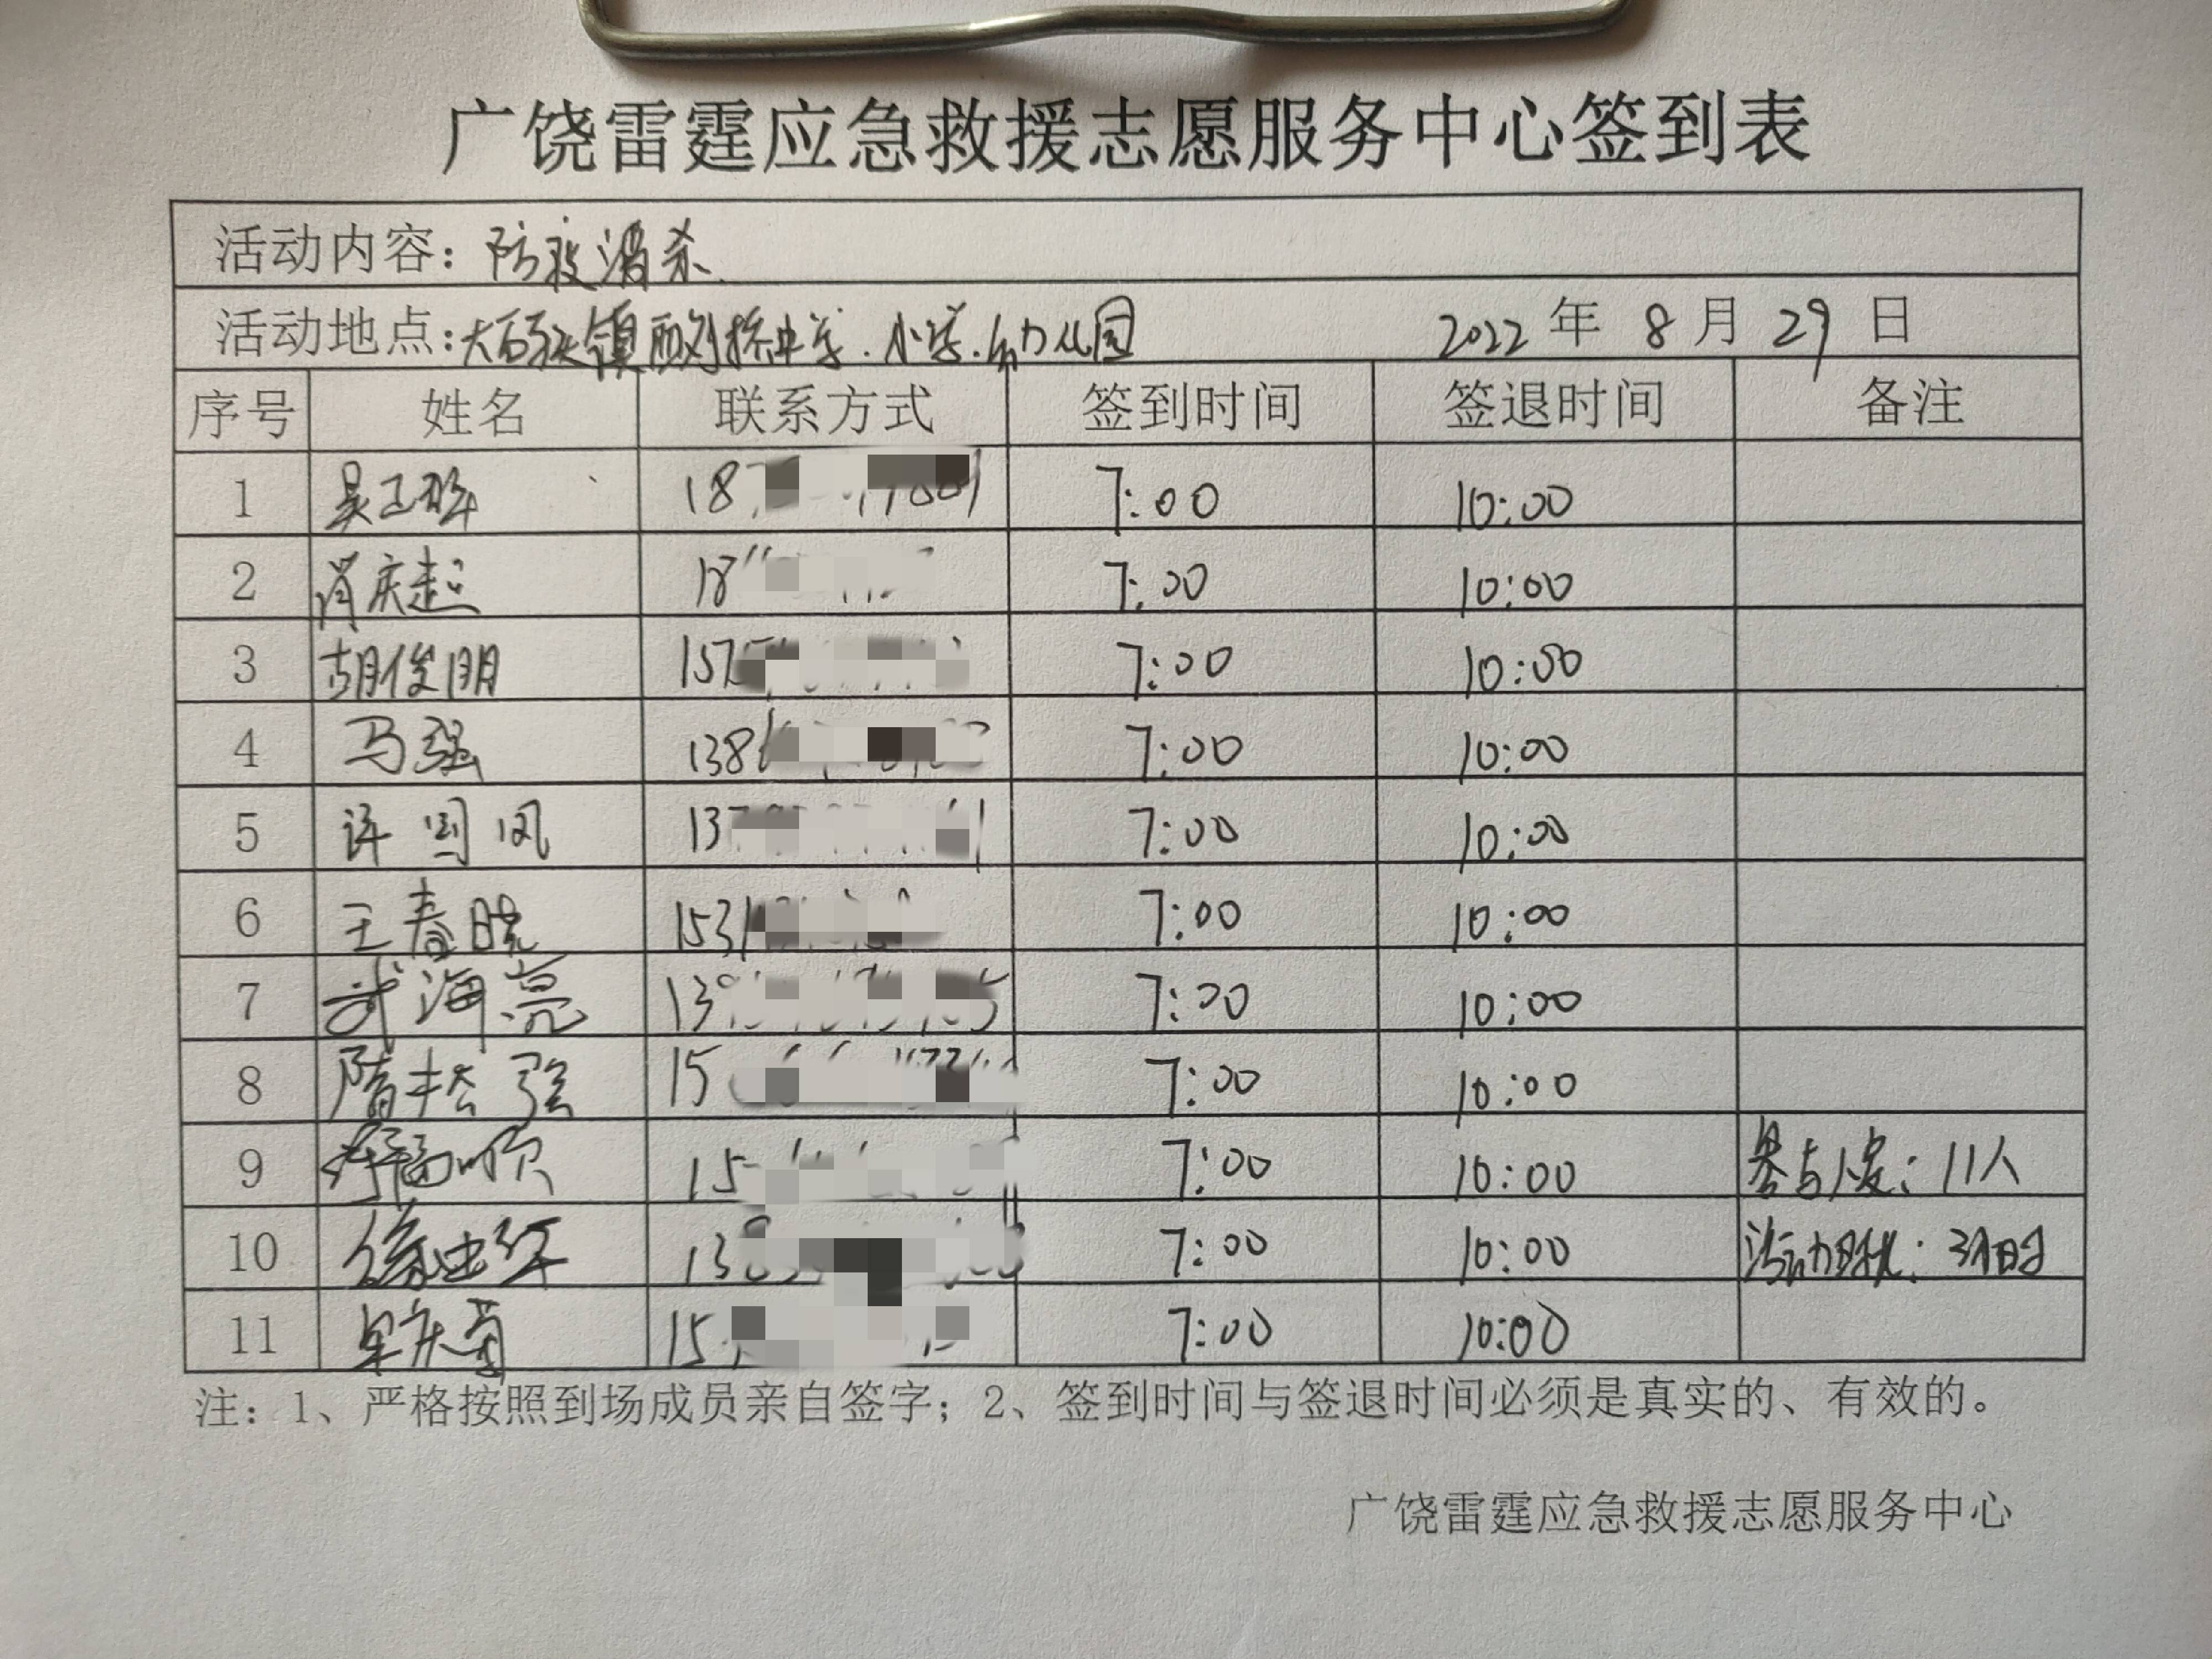 广饶雷霆应急救援志愿服务中心签到表
活动内容：防疫消杀
活动地点：大王镇 中学、小学、幼儿园 2022年8月29日
序号 姓名 联系方式 签到时间 签退时间 备注
1 吴 18 7:00 10:00
2 肖庆起 18 7:00 10:00
3 胡俊朋 157 7:00 10:00
4 马强 138 7:00 10:00
5 许国凤 13 7:00 10:00
6 王春晓 153 7:00 10:00
7 武海亮 13 7:00 10:00
8 隋松强 15 7:00 10:00
9 福顺 15 7:00 10:00 参与人员：11人
10 徐忠 13 7:00 10:00 活动时长：3小时
11 15 7:00 10:00
注：1、严格按照到场成员亲自签字；2、签到时间与签退时间必须是真实的、有效的。
广饶雷霆应急救援志愿服务中心